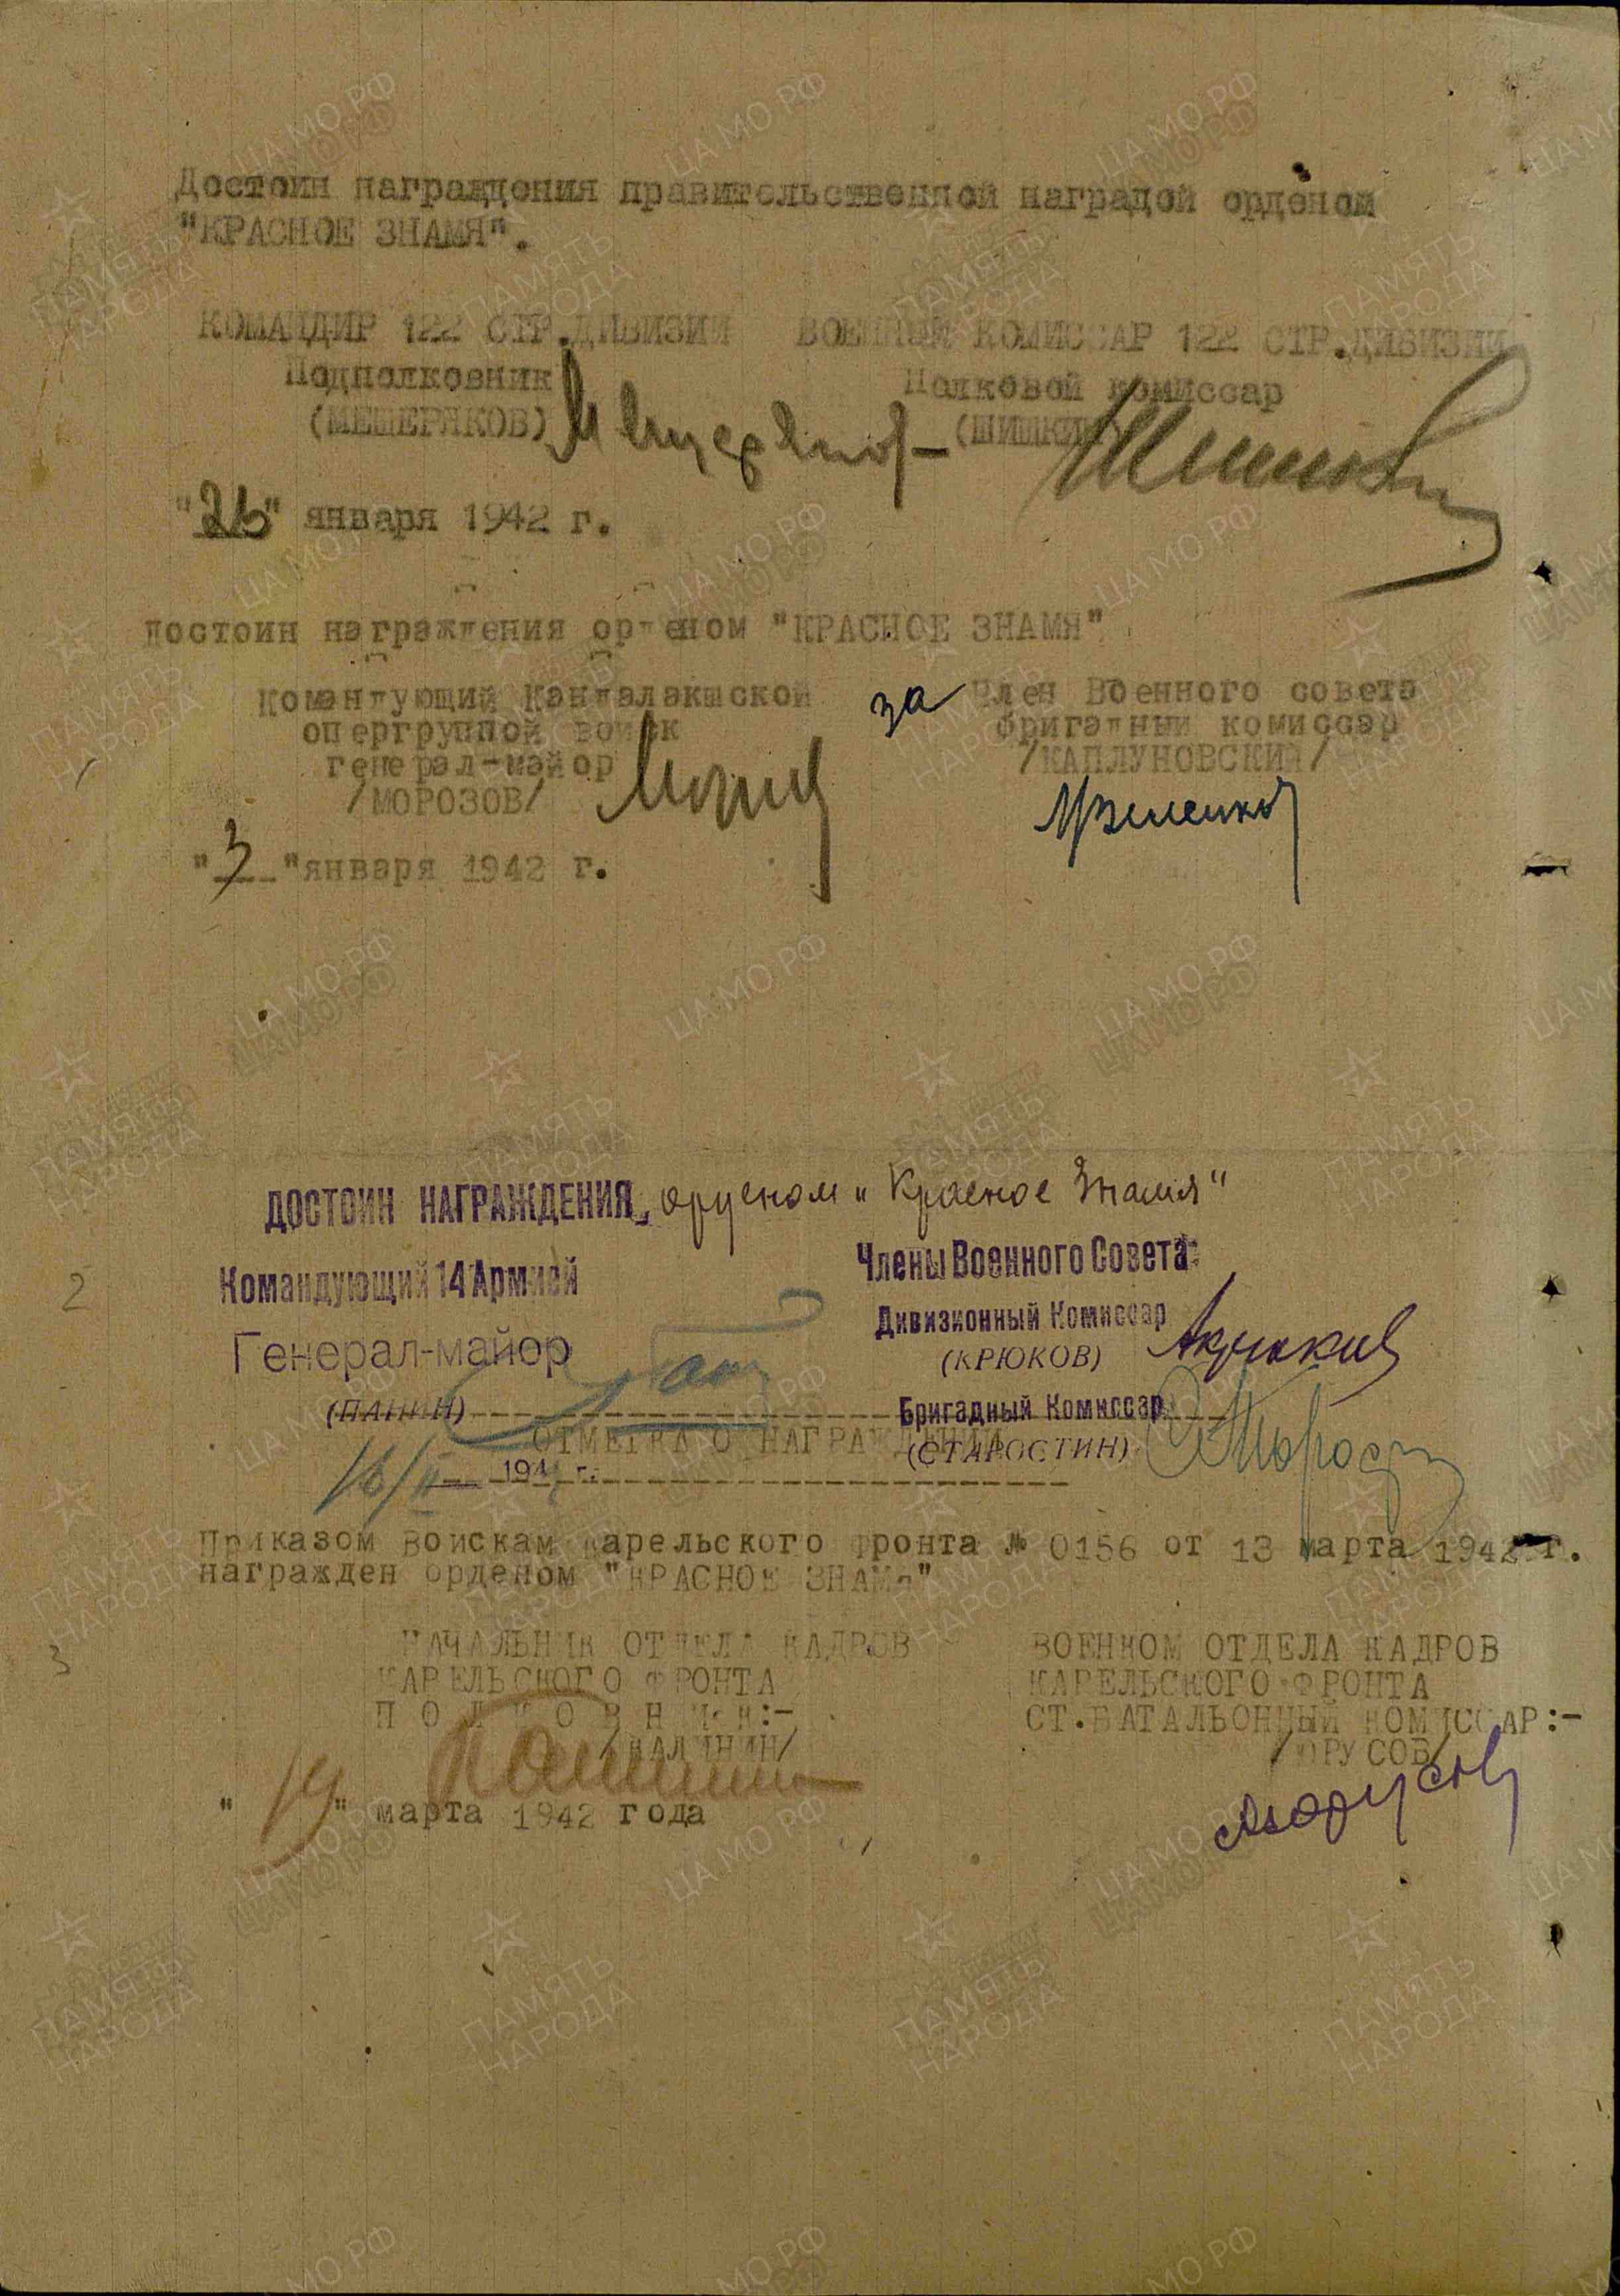 Достоин награждения правительственной наградой орденом
"КРАСНОЕ ЗНАМЯ".
КОМАНДИР 122 СТР.ДИВИЗИИ ВОЕННЫЙ КОМИССАР 122 СТР.ДИВИЗИИ
Подполковник Полковой комиссар
(МЕЩЕРЯКОВ) (ШИШКИН)
"26" января 1942 г.
достоин награждения орденом "КРАСНОЕ ЗНАМЯ"
Командующий Кандалакшской за Член Военного совета
опергруппой войск бригадный комиссар
генерал-майор /КАПЛУНОВСКИЙ/
/МОРОЗОВ/
"3" января 1942 г.
ДОСТОИН НАГРАЖДЕНИЯ орденом "Красное Знамя"
Члены Военного Совета:
Командующий 14 Армией
Дивизионный Комиссар
Генерал-майор (КРЮКОВ)
(ПАНИН) Бригадный Комиссар
ОТМЕТКА О НАГРАЖДЕНИИ
(СТАРОСТИН)
16/II 194 г.
Приказом Войскам Карельского фронта № 0156 от 13 марта 1942 г.
награжден орденом "КРАСНОЕ ЗНАМЯ"
НАЧАЛЬНИК ОТДЕЛА КАДРОВ ВОЕНКОМ ОТДЕЛА КАДРОВ
КАРЕЛЬСКОГО ФРОНТА КАРЕЛЬСКОГО ФРОНТА
П О Л К О В Н И К:- СТ.БАТАЛЬОННЫЙ КОМИССАР:-
/КАЛИНИН/ /ЮРУСОВ/
"19" марта 1942 года
2
3
ЦА МО РФ
ПАМЯТЬ НАРОДА